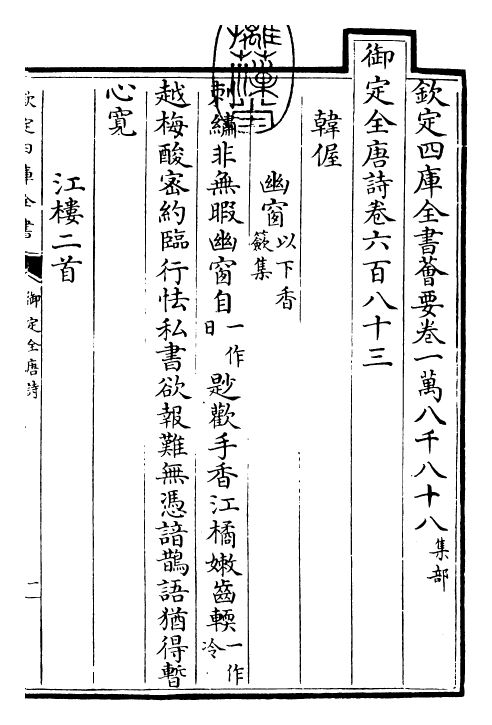 欽定四庫全書薈要卷一萬八千八十八集部
御定全唐詩卷六百八十三
韓偓
幽窗以下香籢集
刺繡非無暇幽窗自一作日尠歡手香江橘嫩齒輭一作冷
越梅酸密約臨行怯私書欲報難無憑諳鵲語猶得暫
心寬
江樓二首
欽定四庫全書
御定全唐詩